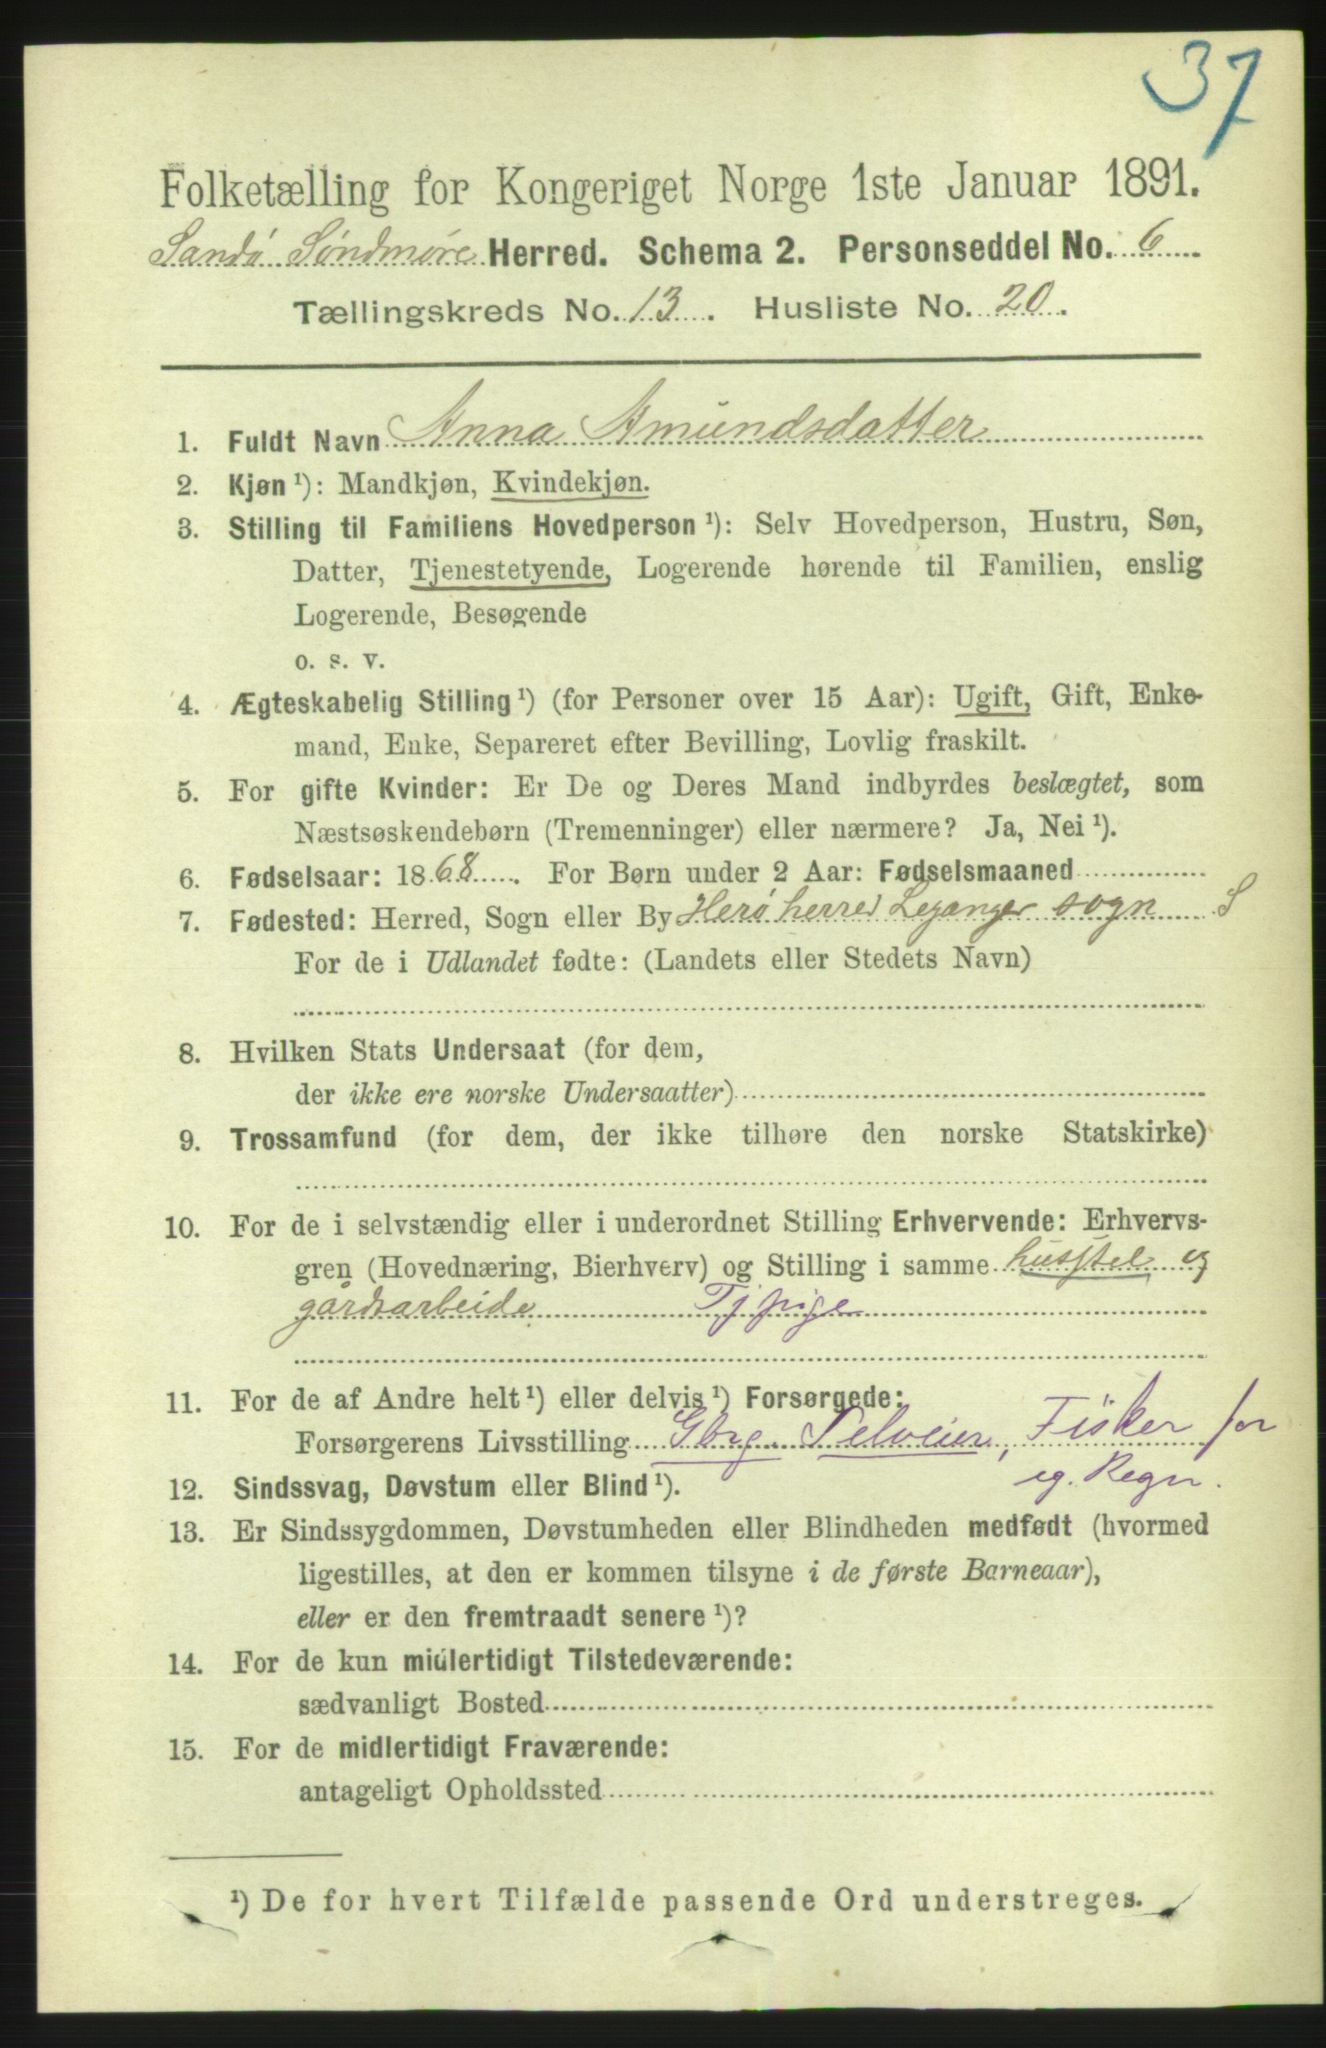 37
Folketælling for Kongeriget Norge 1ste Januar 1891.
Sandö Söndmöre Herred. Schema 2. Personseddel No. 6
Tællingskreds No. 13. Husliste No. 20.
1. Fuldt Navn Anna Amundsdatter
2. Kjøn ¹): Mandkjøn, Kvindekjøn.
3. Stilling til Familiens Hovedperson ¹): Selv Hovedperson, Hustru, Søn,
Datter, Tjenestetyende, Logerende hørende til Familien, enslig
Logerende, Besøgende
o. s. v.
4. Ægteskabelig Stilling ¹) (for Personer over 15 Aar): Ugift, Gift, Enke-
mand, Enke, Separeret efter Bevilling, Lovlig fraskilt.
5. For gifte Kvinder: Er De og Deres Mand indbyrdes beslægtet, som
Næstsøskendebørn (Tremenninger) eller nærmere? Ja, Nei ¹).
6. Fødselsaar: 1868. For Børn under 2 Aar: Fødselsmaaned
7. Fødested: Herred, Sogn eller By Herö herred Leganger sogn S
For de i Udlandet fødte: (Landets eller Stedets Navn)
8. Hvilken Stats Undersaat (for dem,
der ikke ere norske Undersaatter)
9. Trossamfund (for dem, der ikke tilhøre den norske Statskirke)
10. For de i selvstændig eller i underordnet Stilling Erhvervende: Erhvervs-
gren (Hovednæring, Bierhverv) og Stilling i samme husstel og
gårdsarbeide Tj pige
11. For de af Andre helt ¹) eller delvis ¹) Forsørgede:
Forsørgerens Livsstilling Gbrg. Selveier, Fisker for
eg. Regn.
12. Sindssvag, Døvstum eller Blind ¹).
13. Er Sindssygdommen, Døvstumheden eller Blindheden medfødt (hvormed
ligestilles, at den er kommen tilsyne i de første Barneaar),
eller er den fremtraadt senere ¹)?
14. For de kun midlertidigt Tilstedeværende:
sædvanligt Bosted
15. For de midlertidigt Fraværende:
antageligt Opholdssted
¹) De for hvert Tilfælde passende Ord understreges.